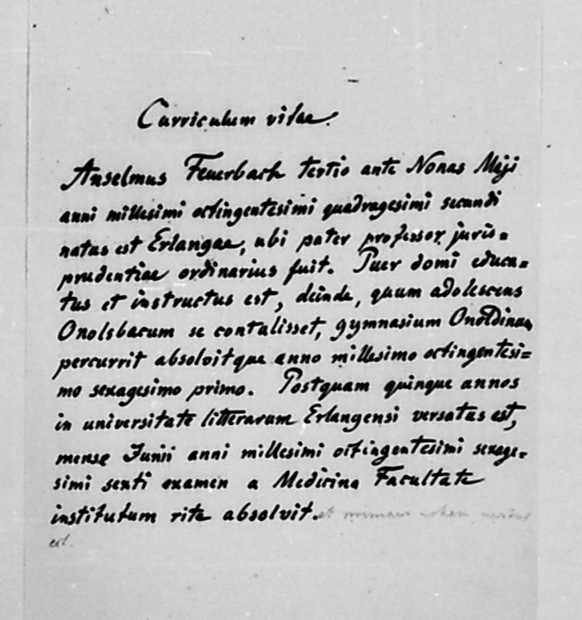 Curriculum vitae.
Anselmus Feuerbach tertio ante Nonas Maji
anni millesimi octingentesimi quadragesimi secundi
natus est Erlangae, ubi pater professor juris=
prudentiae ordinarius fuit. Puer domi educa=
tus et instructus est, deinde, quum adolescens
Onolsbacum se contulisset, gymnasium Onoldinum
percurrit absolvitque anno millesimo octingentesi=
mo sexagesimo primo. Postquam quinque annos
in universitate litterarum Erlangensi versatus est,
mense Junii anni millesimi octingentesimi sexage=
simi sexti examen a Medicina Facultate
institutum rite absolvit. et
est.